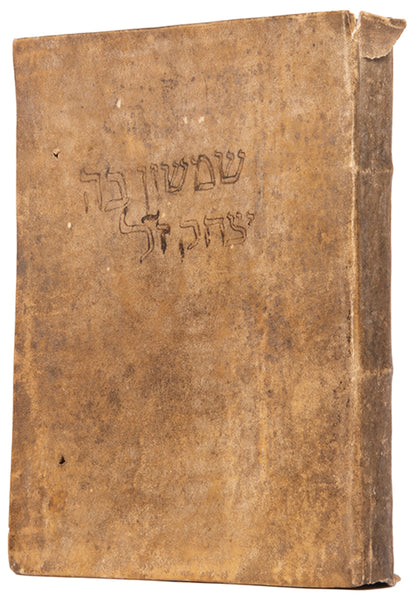 שמשון בה
יצחק ז״ל